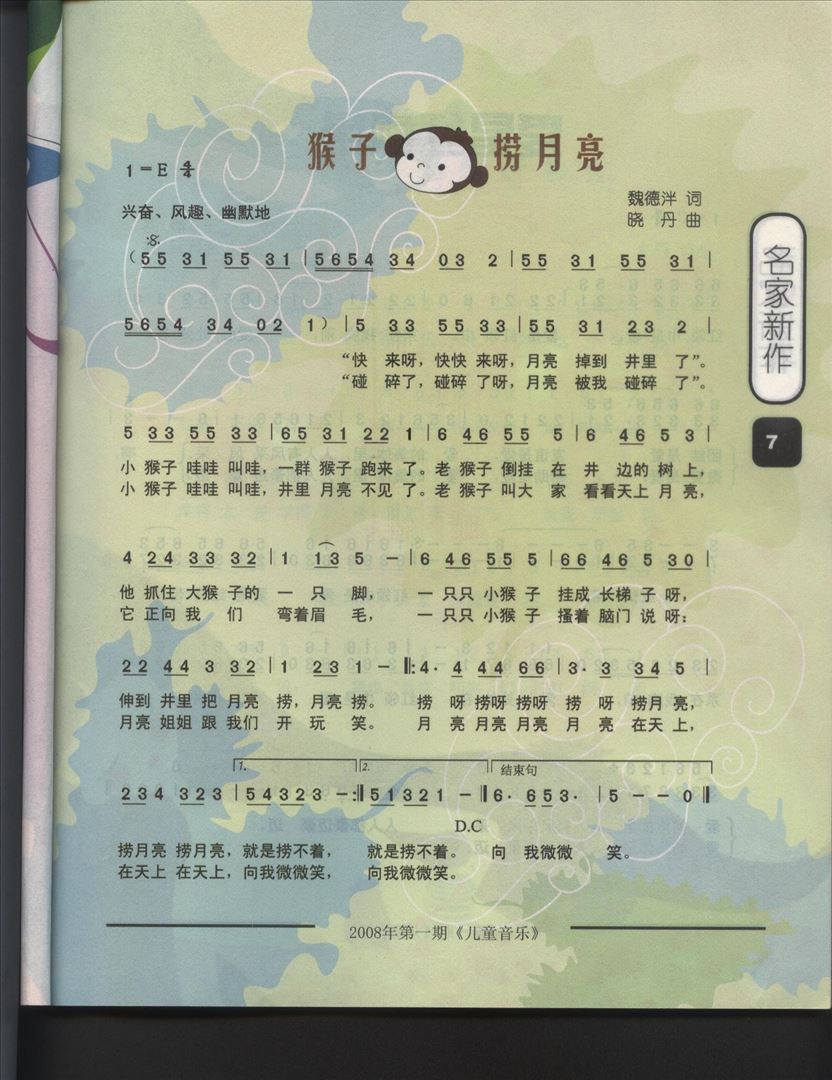 猴子捞月亮
1=E 4/4
魏德泮 词
兴奋、风趣、幽默地
晓 丹 曲
名家新作
7
(55 31 55 31 | 5654 34 03 2 | 55 31 55 31 |
5654 34 02 1) | 5 33 55 33 | 55 31 23 2 |
“快 来呀,快快 来呀,月亮 掉到 井里 了”。
“碰 碎了,碰碎 了呀,月亮 被我 碰碎 了”。
5 33 55 33 | 65 31 22 1 | 6 46 55 5 | 6 46 5 3 |
小 猴子 哇哇 叫哇,一群 猴子 跑来 了。老 猴子 倒挂 在 井 边的 树 上,
小 猴子 哇哇 叫哇,井里 月亮 不见 了。老 猴子 叫大 家 看看天上 月 亮,
4 24 33 32 | 1 13 5 - | 6 46 55 5 | 66 46 5 30 |
他 抓住 大猴 子的 一 只 脚, 一 只只 小猴 子 挂成 长梯 子 呀,
它 正向 我 们 弯着眉 毛, 一 只只 小猴 子 搔着 脑门 说 呀:
22 44 3 32 | 1 23 1 - ‖: 4· 4 44 66 | 3· 3 34 5 |
伸到 井里 把 月亮 捞,月亮 捞。 捞 呀 捞呀 捞呀 捞 呀 捞月 亮,
月亮 姐姐 跟 我们 开 玩 笑。 月 亮 月亮 月亮 月 亮 在天 上,
1. 2. 结束句
234 323 | 54323 - :‖ 51321 - ‖ 6· 653· | 5 - - 0 ‖
D.C
捞月亮 捞月亮,就是捞不着, 就是捞不着。 向 我微微 笑。
在天上 在天上,向我微微笑, 向我微微笑。
2008年第一期《儿童音乐》